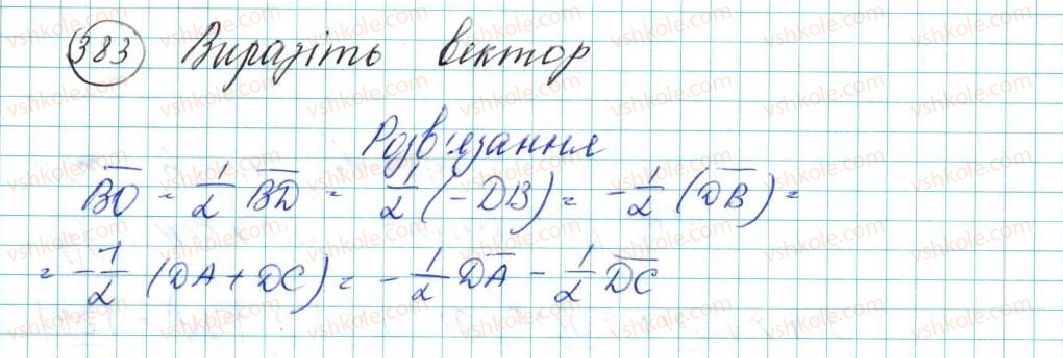 383 Виразіть вектор
Розв'язання
$\overline{BO} = \frac{1}{2} \overline{BD} = \frac{1}{2} (-DB) = -\frac{1}{2} (\overline{DB}) =$
$= -\frac{1}{2} (DA + DC) = -\frac{1}{2} \overline{DA} - \frac{1}{2} \overline{DC}$